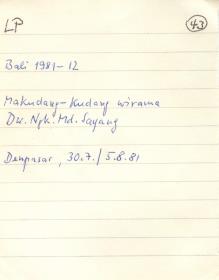 LP
43
Bali 1981-12
Makudang-Kudang wirama
Dw. Ngk. Md. Sayang
Denpasar, 30.7./5.8.81